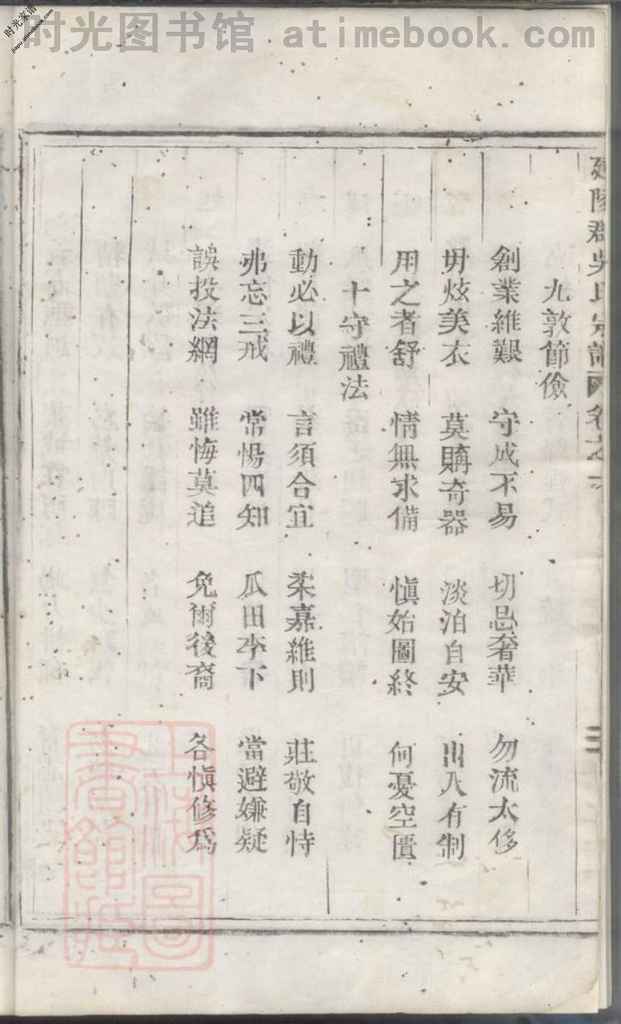 时光图书馆 atimebook.com
时光家谱
延陵郡吳氏宗譜 卷之一
九敦節儉
創業維艱 守成不易 切忌奢華 勿流太侈
毋炫美衣 莫購奇器 淡泊自安 出入有制
用之者舒 情無求備 愼始圖終 何憂空匱
十守禮法
動必以禮 言須合宜 柔嘉維則 莊敬自恃
弗忘三戒 常惕四知 瓜田李下 當避嫌疑
誤投法網 雖悔莫追 凂爾後裔 各愼修爲